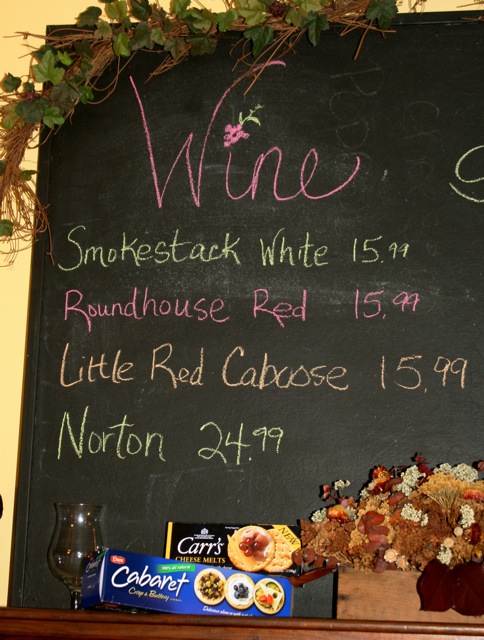 Wine
Smokestack White 15.99
Roundhouse Red 15.99
Little Red Caboose 15.99
Norton 24.99
NEW
Carr's
CHEESE MELTS
Dare
100% all natural
Cabaret
Crisp & Buttery